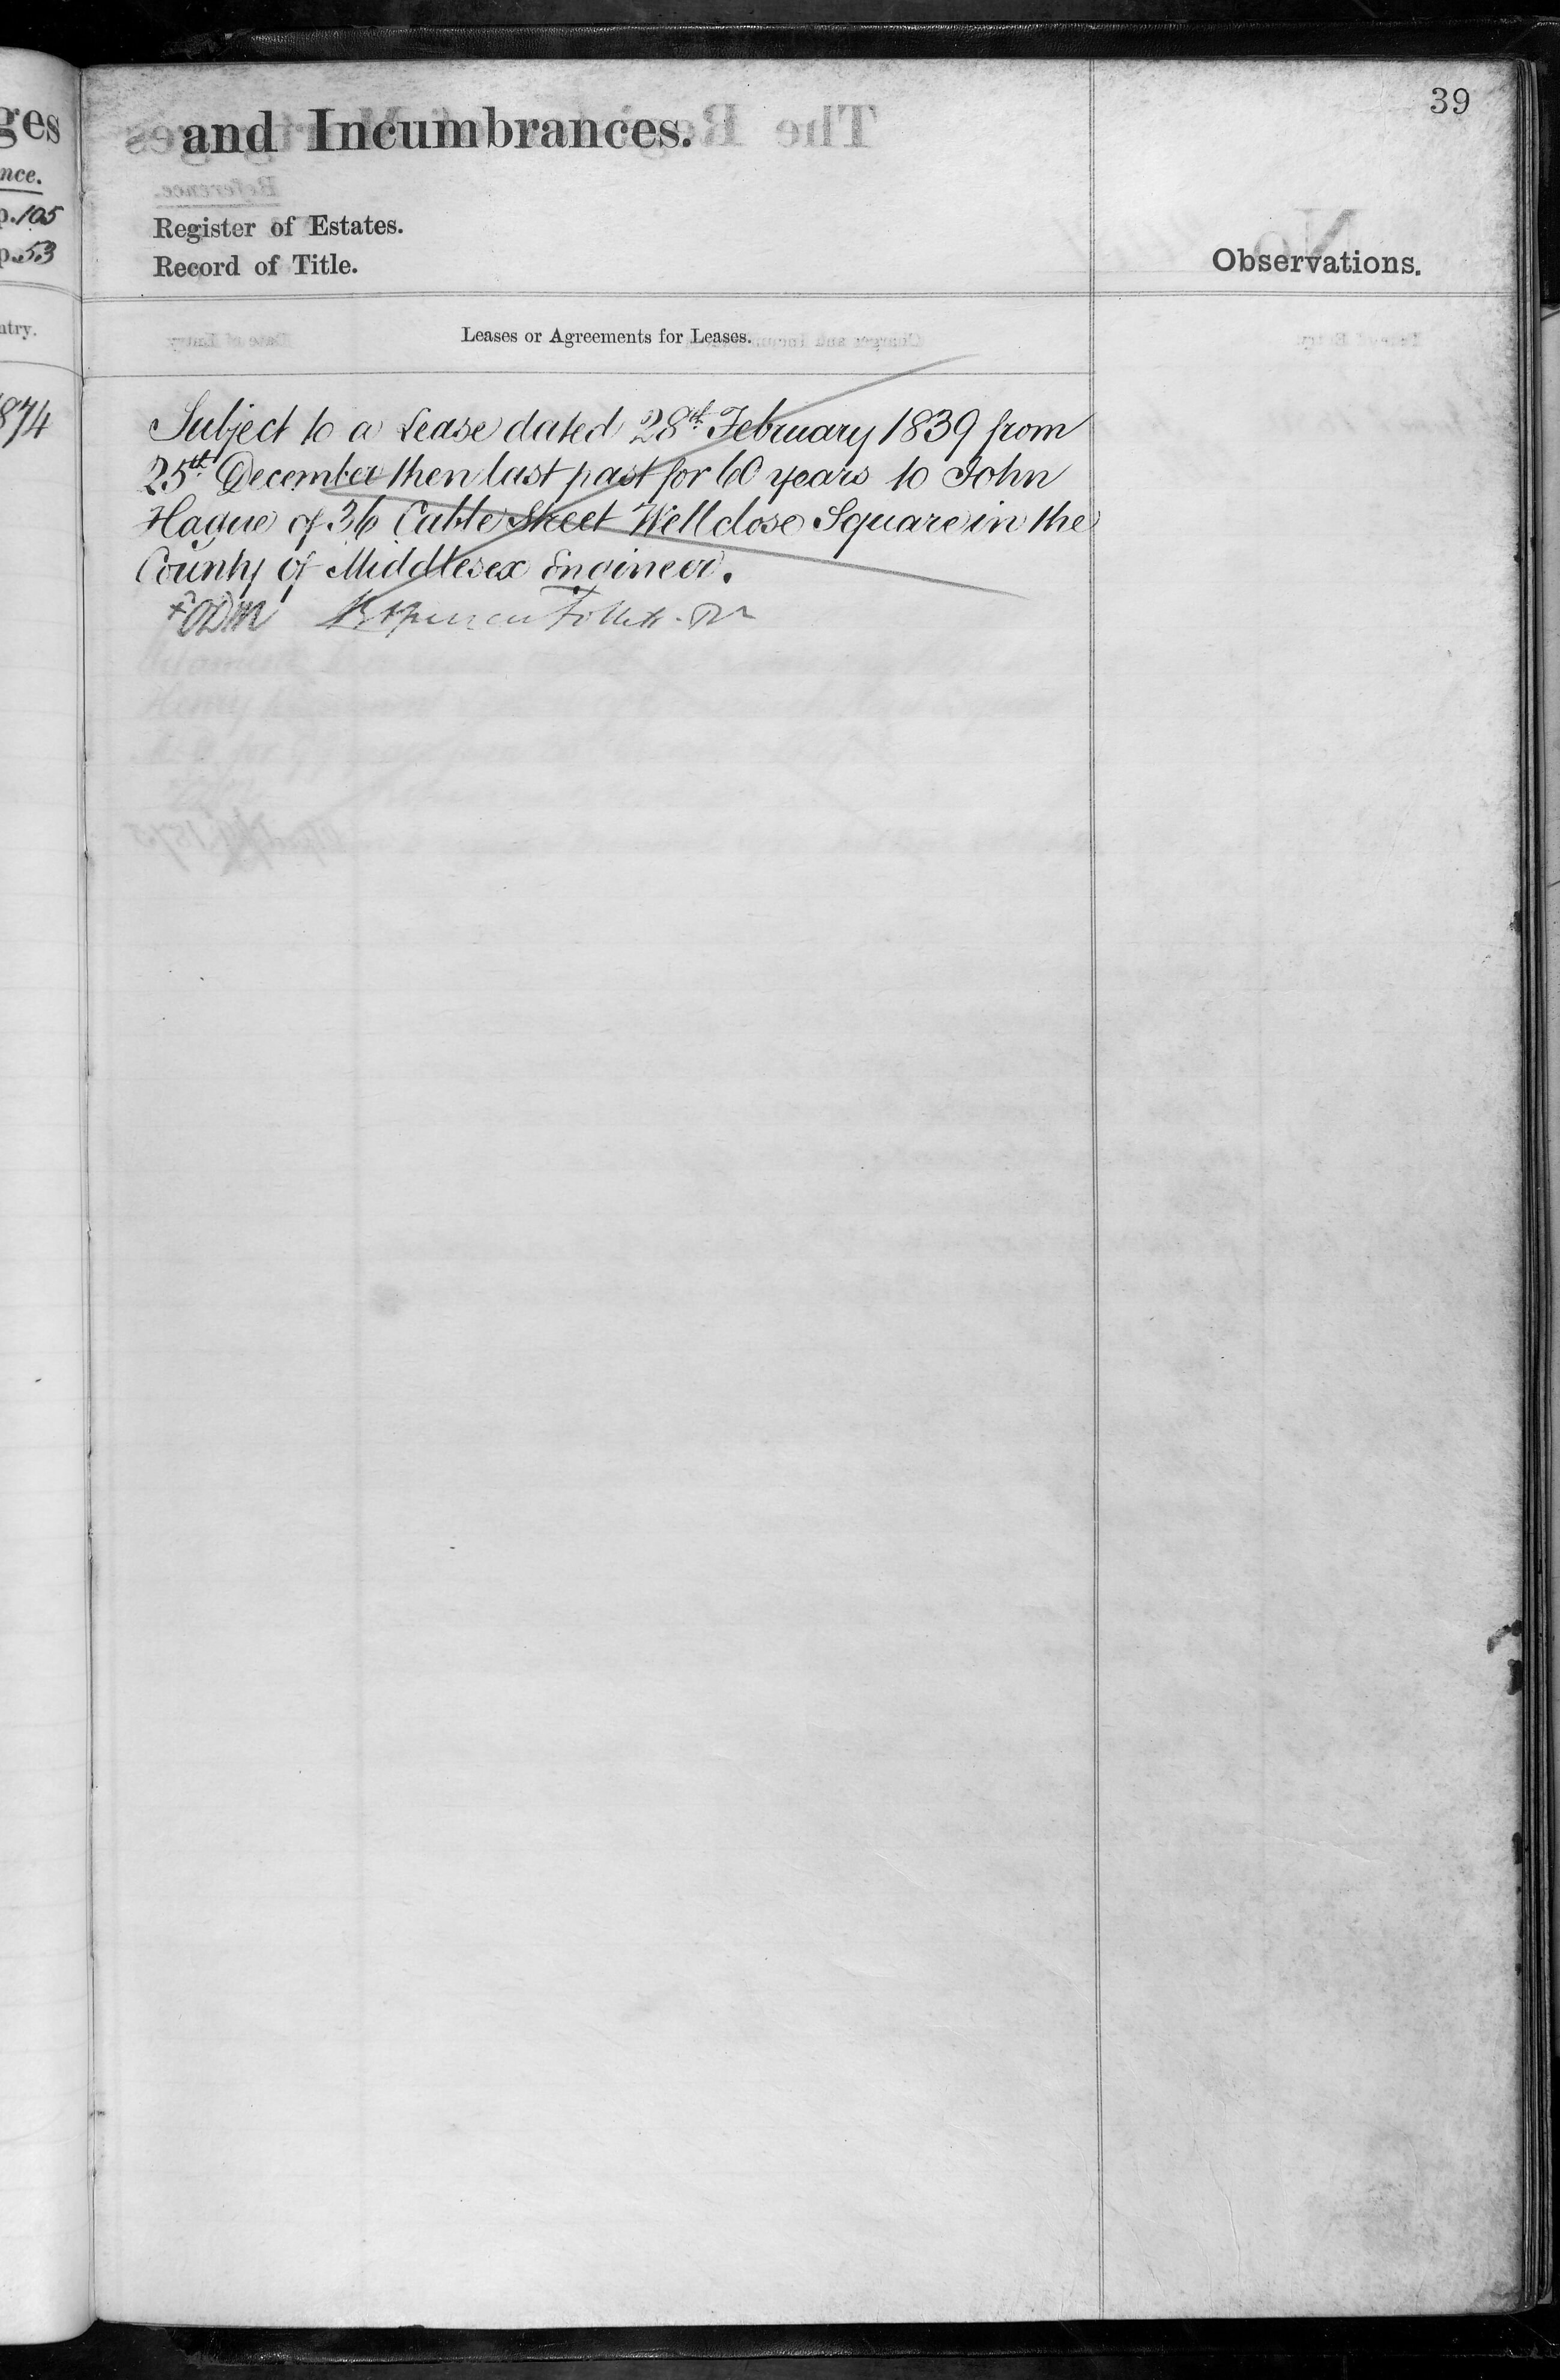 39
and Incumbrances.
Register of Estates.
Record of Title.
Observations.
Leases or Agreements for Leases.
Subject to a Lease dated 28th February 1839 from
25th December then last past for 60 years to John
Hague of 36 Cable Street Wellclose Square in the
County of Middlesex Engineer.
ges
nce.
p. 105
p. 53
ntry.
874